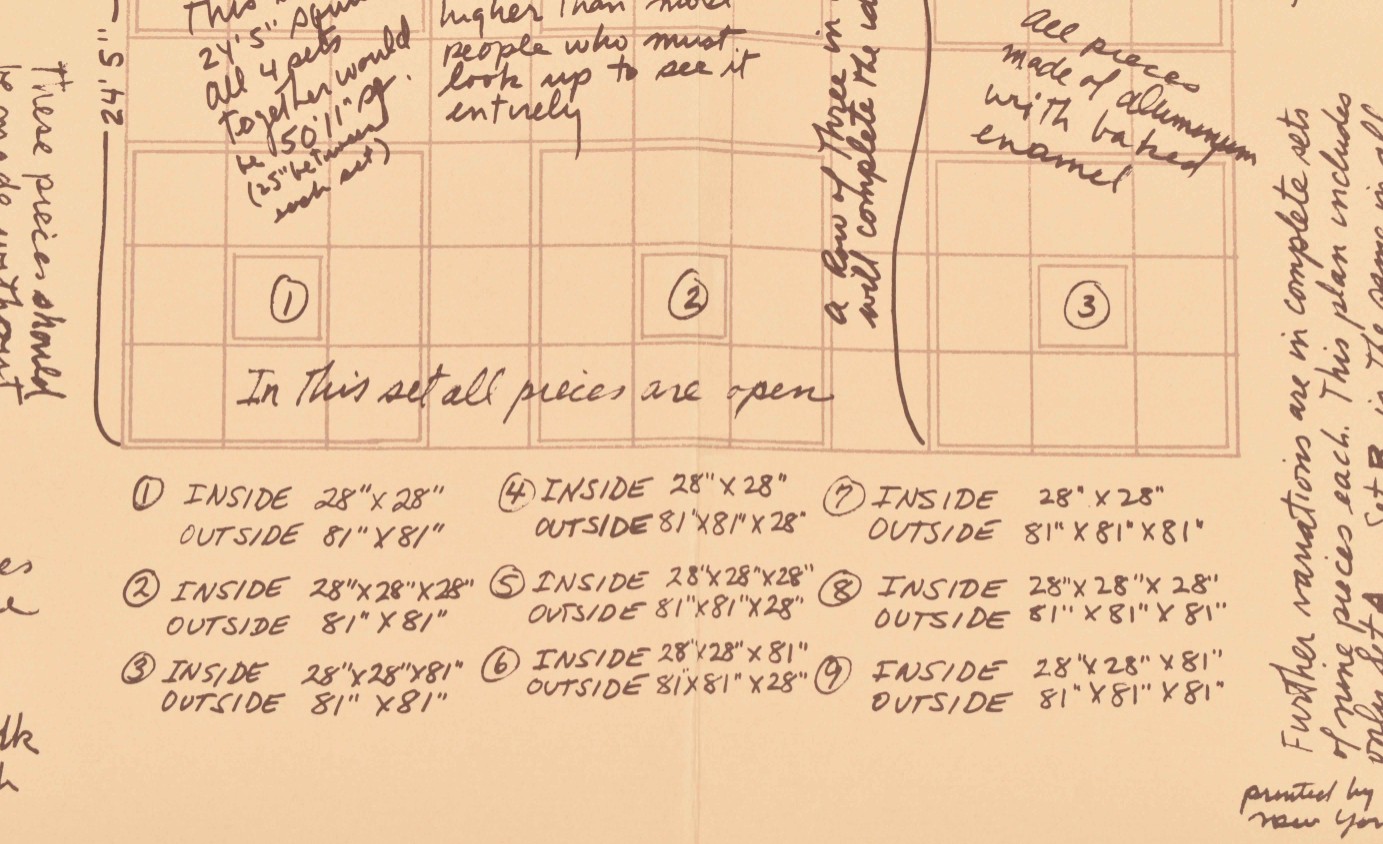 These pieces should
be made without
24'5"
This
24'5" square
all 4 sets
together would
be 50'11" sq.
(25" between
each set)
higher than most
people who must
look up to see it
entirely
a Row of Three in
will complete the
All pieces
made of aluminum
with baked
enamel
1
2
3
In this set all pieces are open
1 INSIDE 28"X28"
OUTSIDE 81"X81"
2 INSIDE 28"X28"X28"
OUTSIDE 81"X81"
3 INSIDE 28"X28"X81"
OUTSIDE 81"X81"
4 INSIDE 28"X28"
OUTSIDE 81"X81"X28"
5 INSIDE 28"X28"X28"
OUTSIDE 81"X81"X28"
6 INSIDE 28"X28"X81"
OUTSIDE 81X81"X28"
7 INSIDE 28"X28"
OUTSIDE 81"X81"X81"
8 INSIDE 28"X28"X28"
OUTSIDE 81"X81"X81"
9 INSIDE 28"X28"X81"
OUTSIDE 81"X81"X81"
Further variations are in complete sets
of nine pieces each. This plan includes
only Set A. Set B is The same in all
printed by
New York